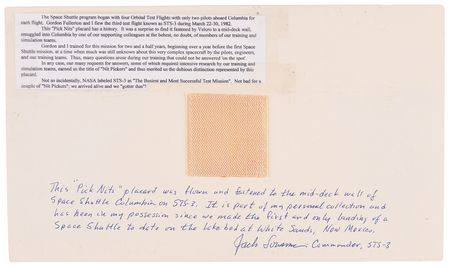 The Space Shuttle program began with four Orbital Test Flights with only two pilots aboard Columbia for
each flight. Gordon Fullerton and I flew the third test flight known as STS-3 during March 22-30, 1982.
This "Pick Nits" placard has a history. It was a surprise to find it fastened by Velcro to a mid-deck wall,
smuggled into Columbia by one of our supporting colleagues at the behest, no doubt, of members of our training and
simulation teams.
Gordon and I trained for this mission for two and a half years, beginning over a year before the first Space
Shuttle mission, at a time when much was still unknown about this very complex spacecraft by the pilots, engineers,
and our training teams. Thus, many questions arose during our training that could not be answered 'on the spot'.
In any case, our many requests for answers, some of which required intensive research by our training and
simulation teams, earned us the title of "Nit Pickers" and thus merited us the dubious distinction represented by this
placard.
Not so incidentally, NASA labeled STS-3 as "The Busiest and Most Successful Test Mission". Not bad for a
couple of "Nit Pickers"; we arrived alive and we "gotter dun"!
This "Pick Nits" placard was flown and fastened to the mid-deck wall of
Space Shuttle Columbia on STS-3. It is part of my personal collection and
has been in my possession since we made the first and only landing of a
Space Shuttle to date on the lakebed at White Sands, New Mexico.
Jack Lousma Commander, STS-3